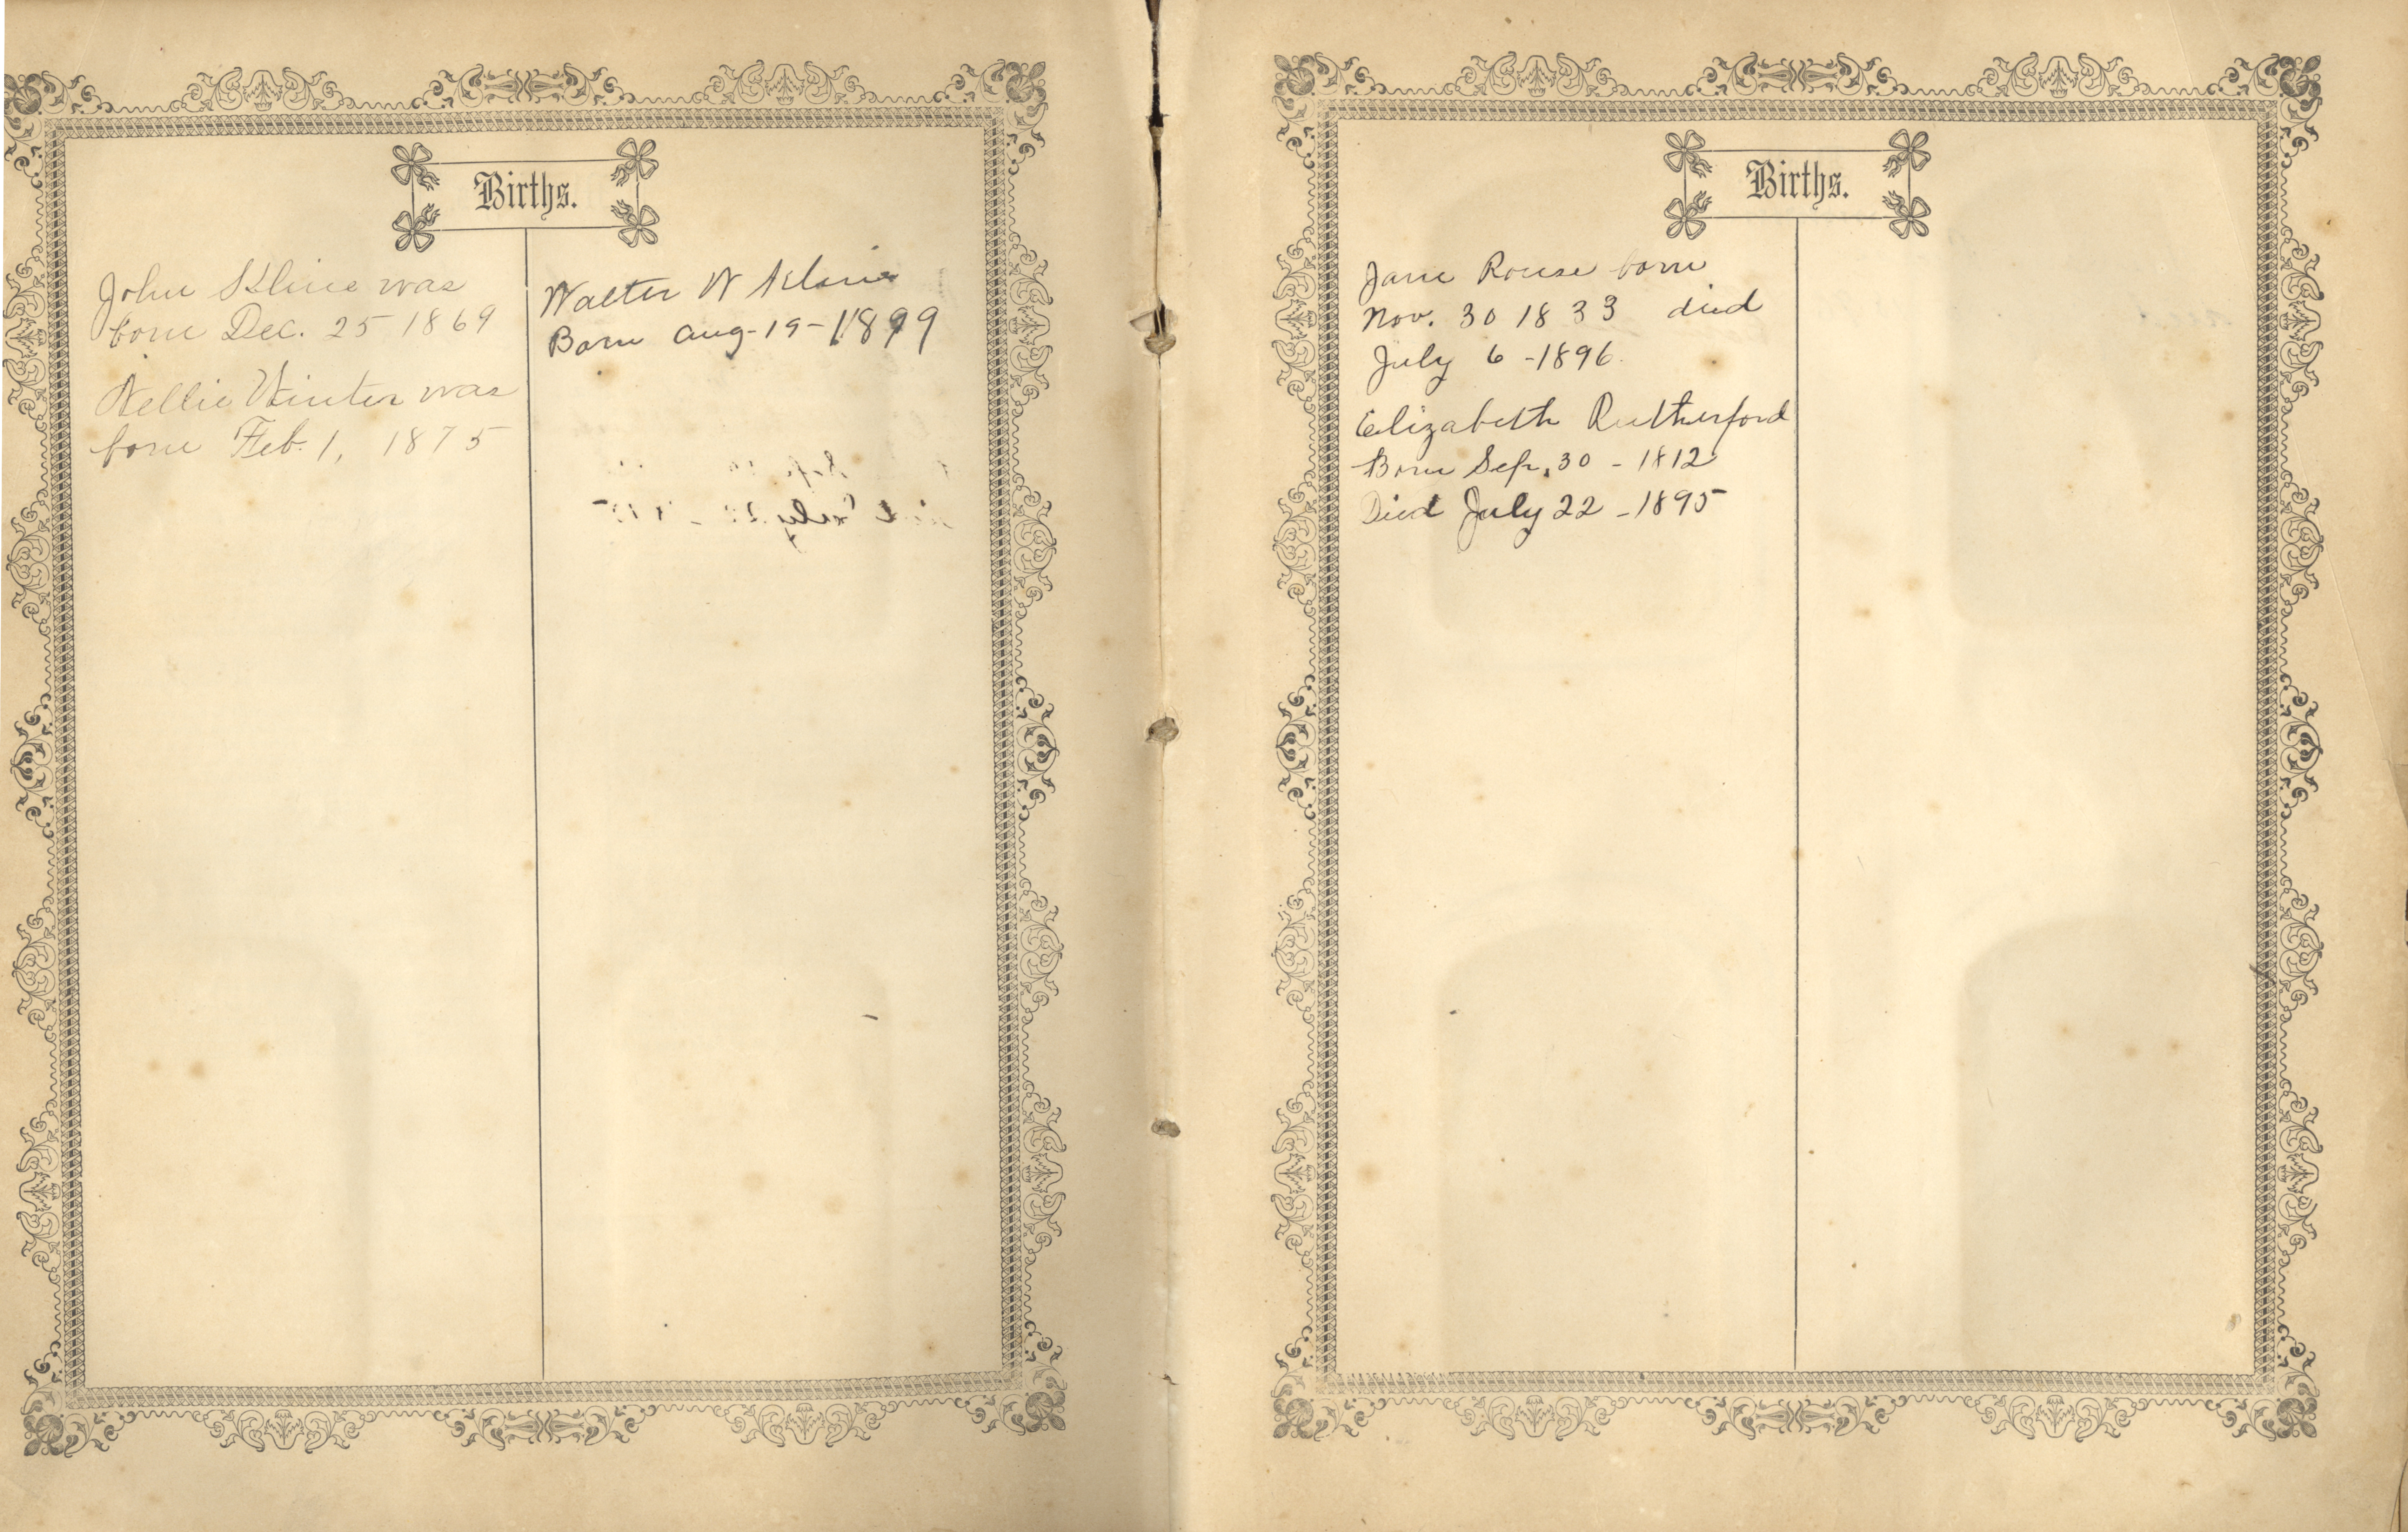 Births.
John Kline was
born Dec. 25 1869
Nellie Winter was
born Feb. 1, 1875
Walter W Kline
Born Aug-19-1899
Births.
Jane Rouse born
Nov. 30 1833 died
July 6 - 1896
Elizabeth Rutherford
Born Sep. 30 - 1812
Died July 22 - 1895